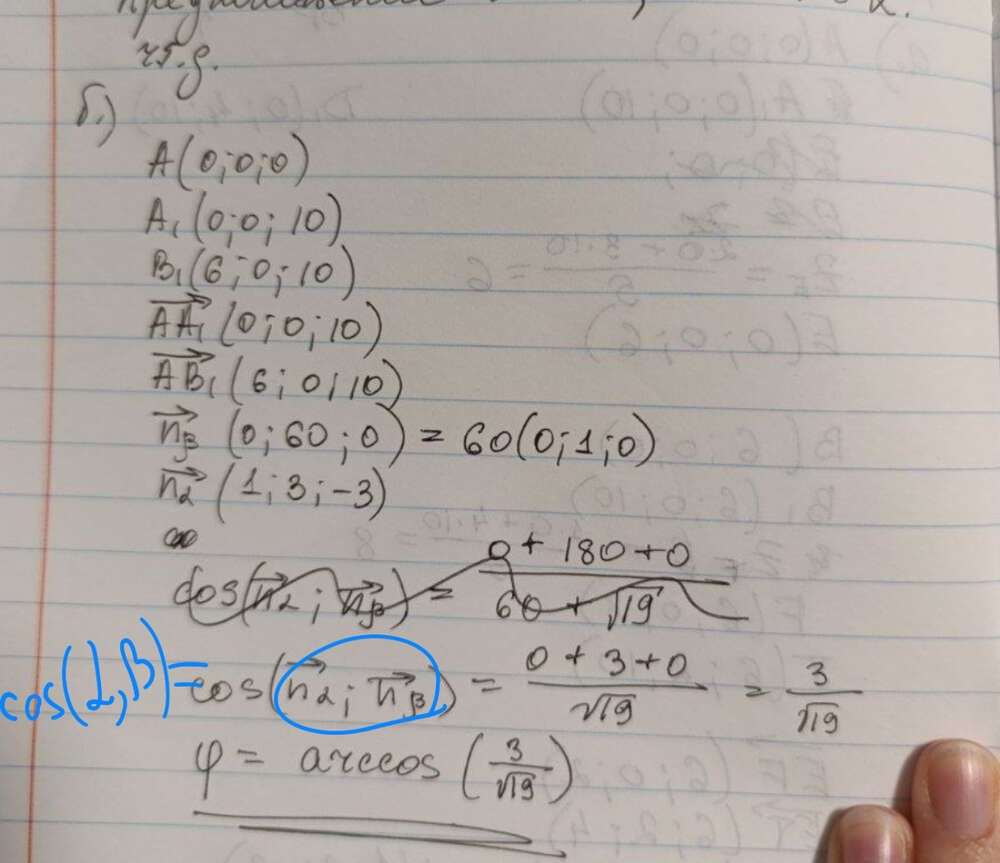 ч.т.д.
б.)
A(0;0;0)
A₁(0;0;10)
B₁(6;0;10)
AA₁(0;0;10)
AB₁(6;0;10)
n᷊β(0;60;0) = 60(0;1;0)
nα(1;3;-3)
cos(nα; nβ) = (0 + 180 + 0)/(60 + √19)
cos(α,β) = cos(nα; nβ) = (0 + 3 + 0)/√19 = 3/√19
φ = arccos(3/√19)